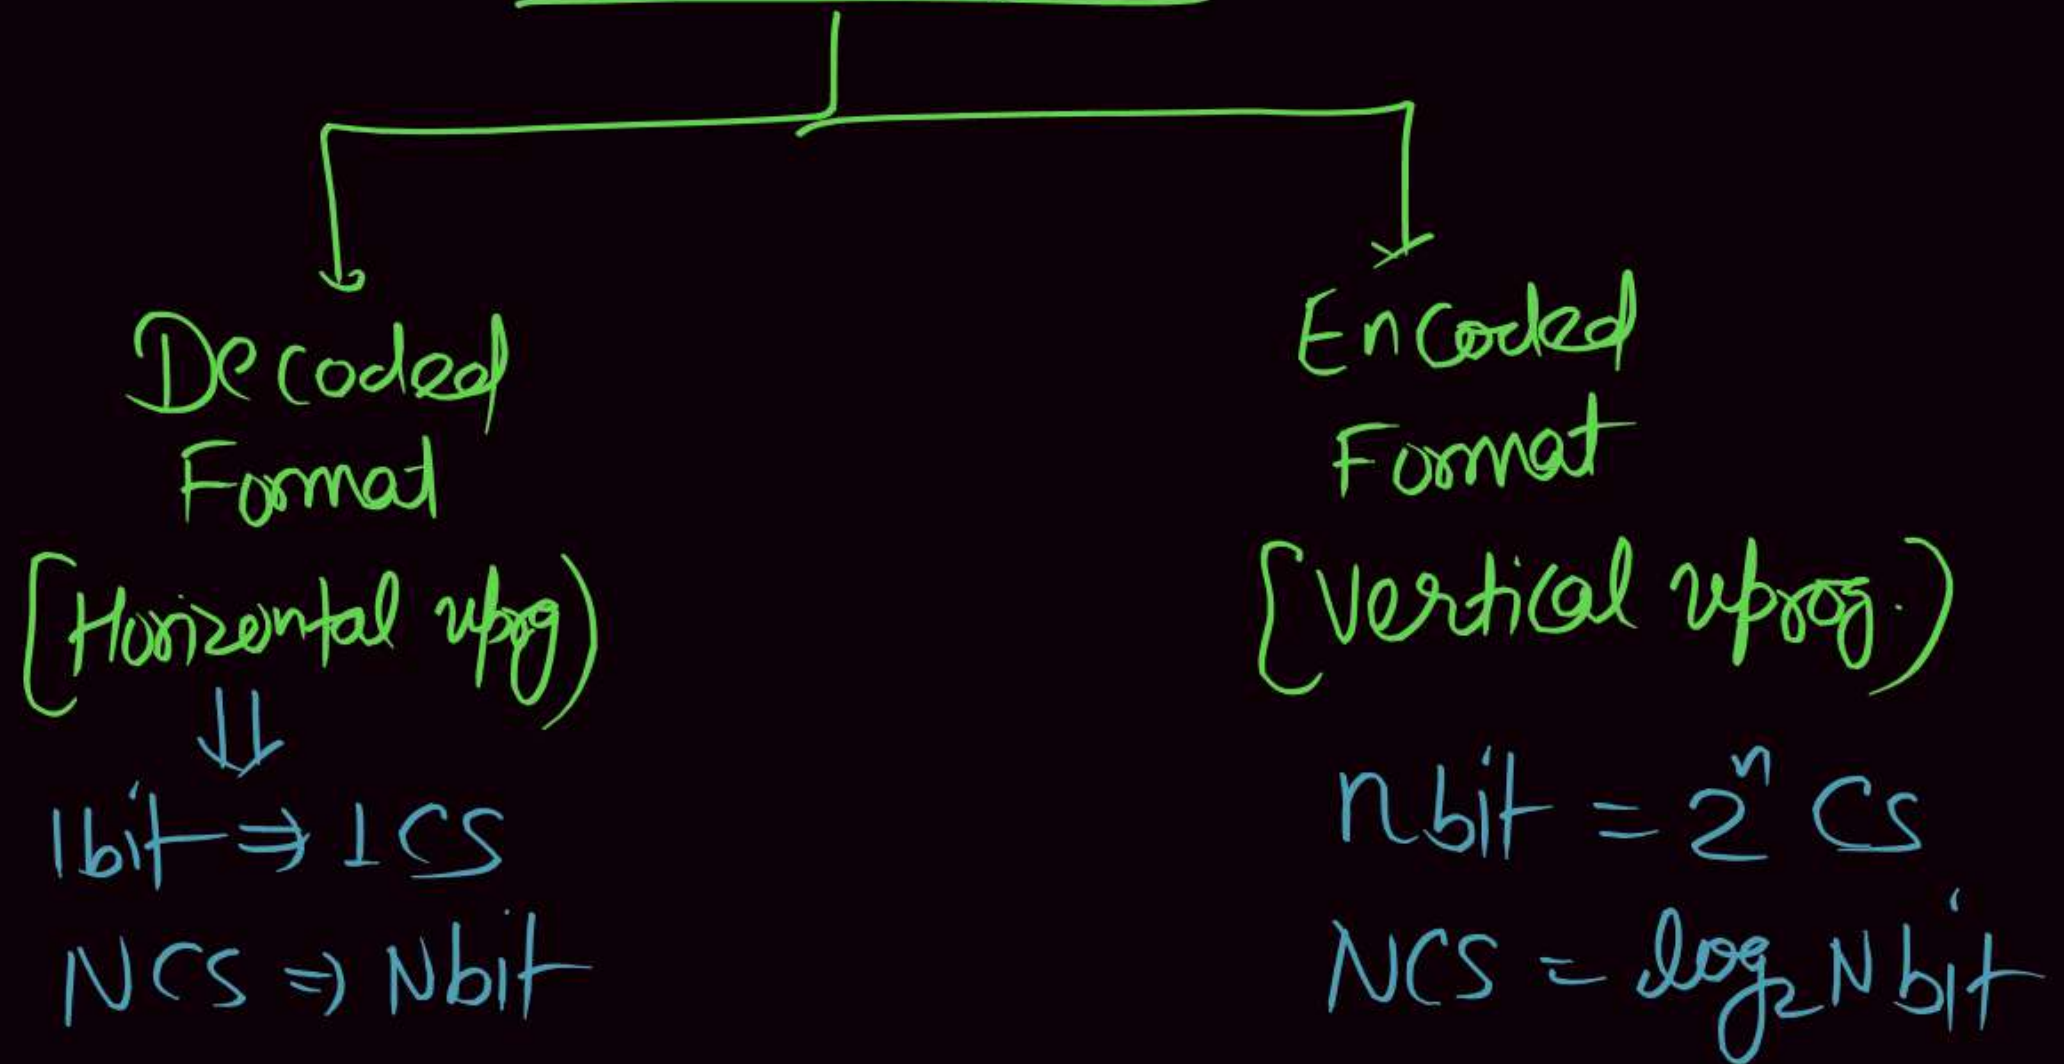 Decoded
Format
[Horizontal μprg)
1bit ⇒ 1CS
NCS ⇒ Nbit
Encoded
Format
[Vertical μprog.)
nbit = 2ⁿ CS
NCS = log₂N bit